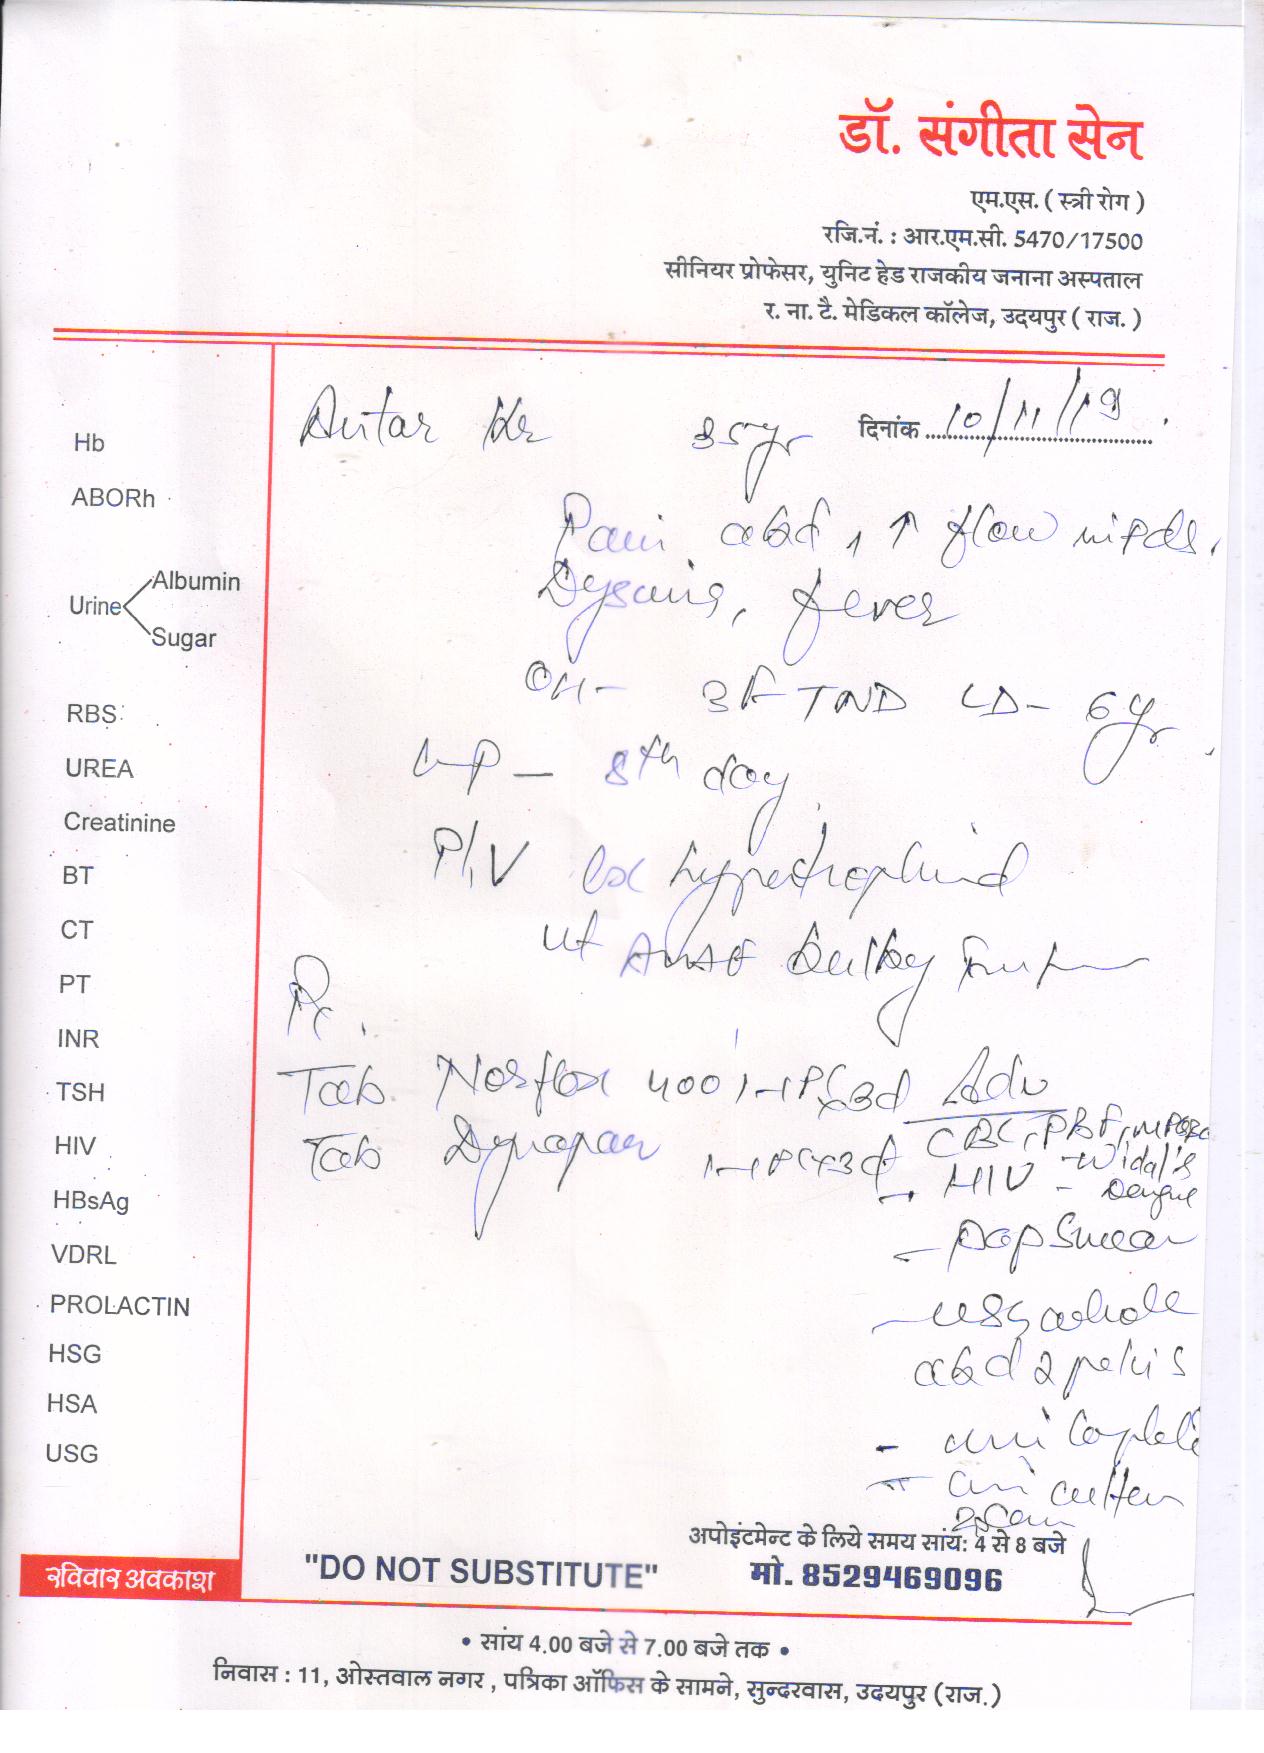 डॉ. संगीता सेन
एम.एस. ( स्त्री रोग )
रजि.नं. : आर.एम.सी. 5470/17500
सीनियर प्रोफेसर, युनिट हेड राजकीय जनाना अस्पताल
र. ना. टै. मेडिकल कॉलेज, उदयपुर ( राज. )
35yr दिनांक 10/11/19
Pain abd, ↑ flow
fever
OH- 3FTND LD- 6yr
LMP - 8th day
P/V Cx hypertrophied
ut bulky
Rx.
Tab. Norflox 400 1-1 x3d Adv
CBC, PBF,
Tab 1-1 x3d
- Widal's
- HIV - Dengue
- Pap Smear
- USG whole
abd & pelvis
-
-
Hb
ABORh
Urine Albumin
Sugar
RBS
UREA
Creatinine
BT
CT
PT
INR
TSH
HIV
HBsAg
VDRL
PROLACTIN
HSG
HSA
USG
रविवार अवकाश
"DO NOT SUBSTITUTE"
अपोइंटमेन्ट के लिये समय सांय: 4 से 8 बजे
मो. 8529469096
• सांय 4.00 बजे से 7.00 बजे तक •
निवास : 11, ओस्तवाल नगर , पत्रिका ऑफिस के सामने, सुन्दरवास, उदयपुर (राज.)